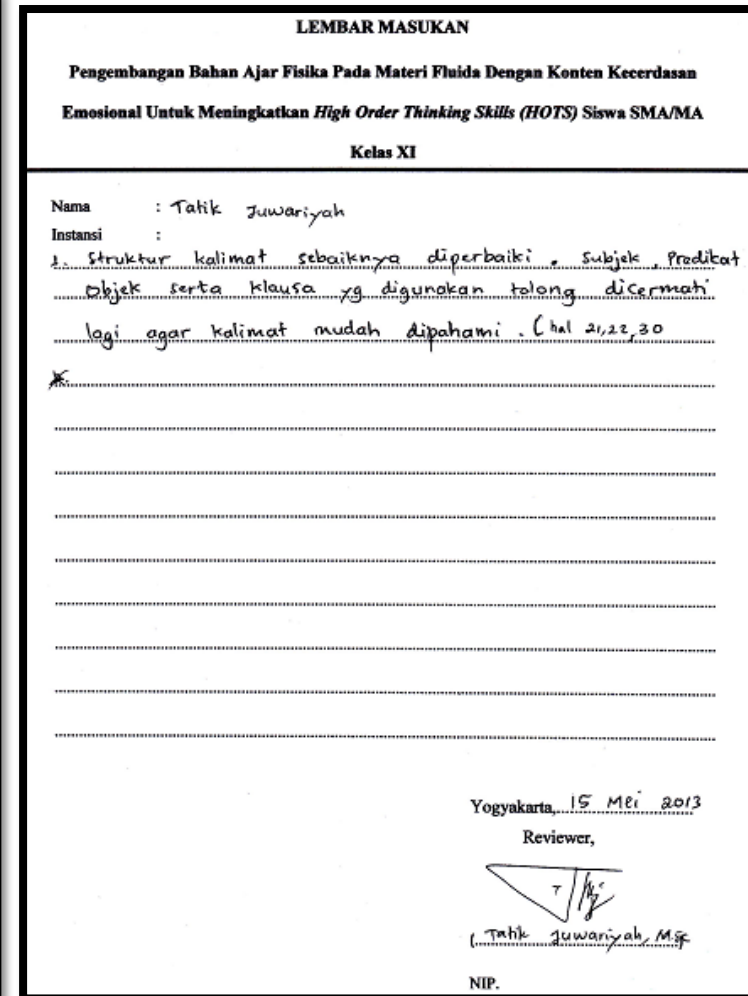 LEMBAR MASUKAN
Pengembangan Bahan Ajar Fisika Pada Materi Fluida Dengan Konten Kecerdasan
Emosional Untuk Meningkatkan High Order Thinking Skills (HOTS) Siswa SMA/MA
Kelas XI
Nama : Tatik Juwariyah
Instansi :
1. Struktur kalimat sebaiknya diperbaiki. Subjek, Predikat
Objek serta klausa yg digunakan tolong dicermati
lagi agar kalimat mudah dipahami. (hal 21,22,30
Yogyakarta, 15 Mei 2013
Reviewer,
( Tatik Juwariyah, M.Sc
NIP.